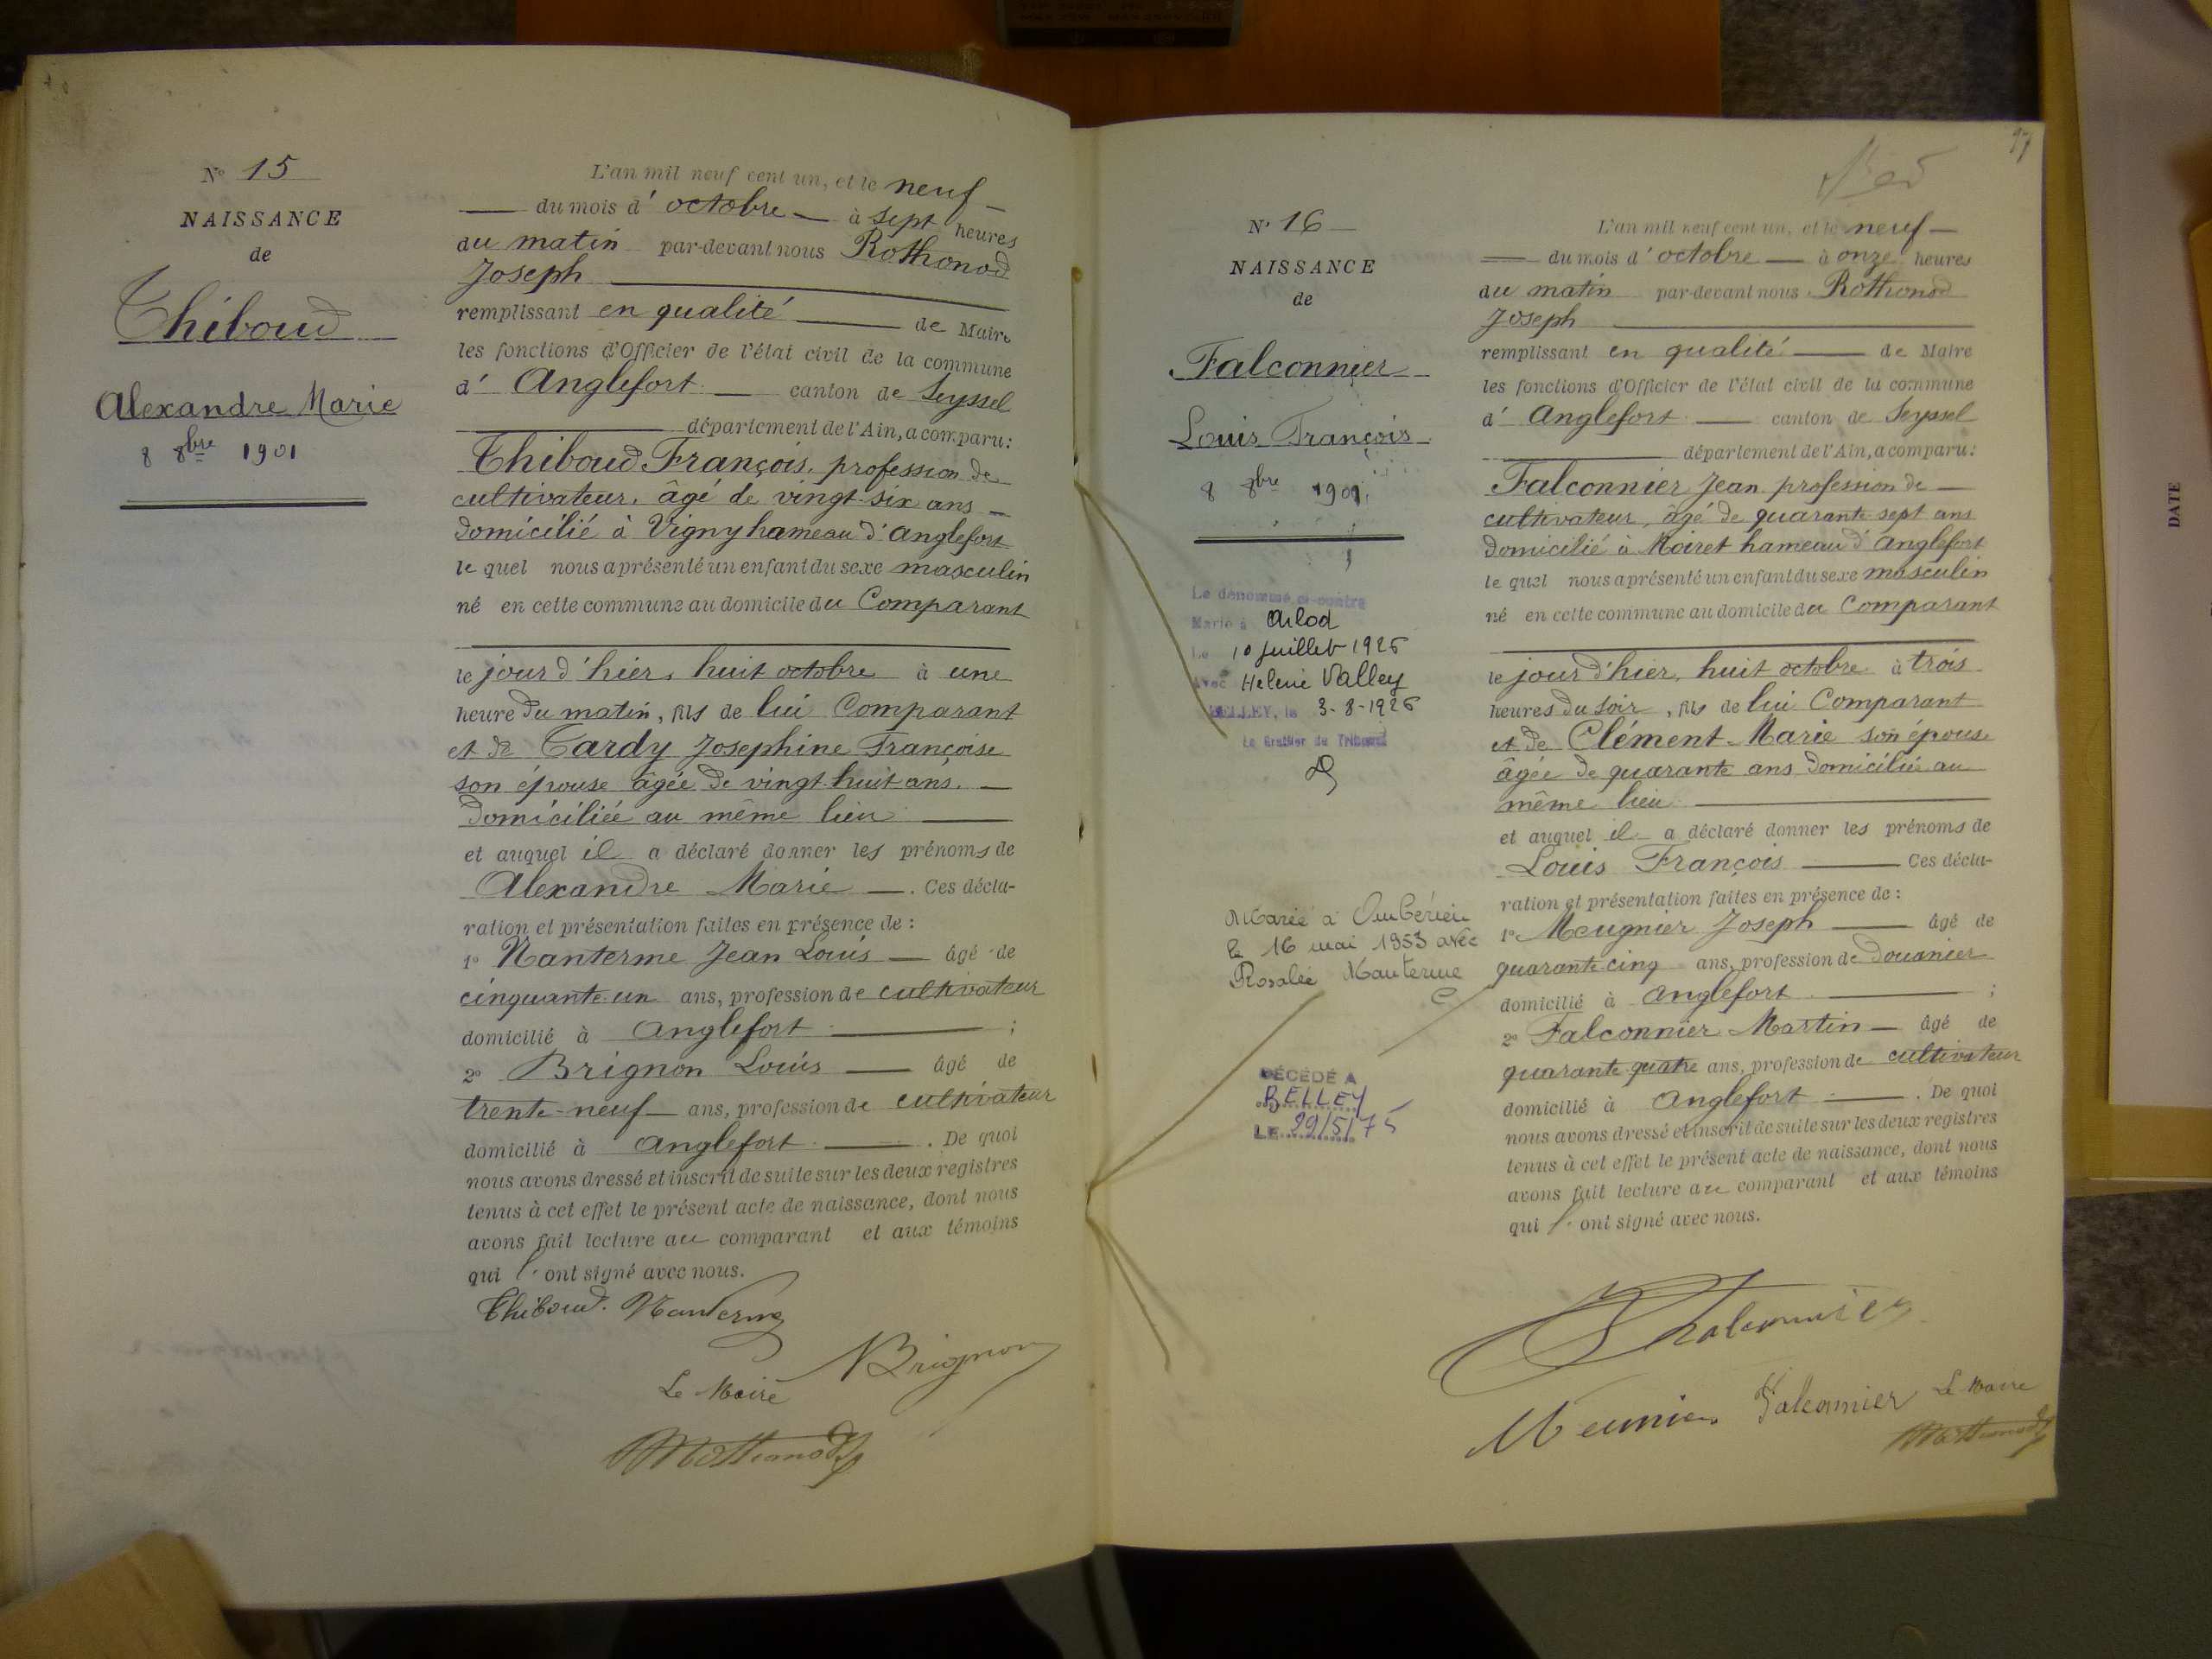 N° 15
NAISSANCE
de
Thiboud
Alexandre Marie
8 8bre 1901
L'an mil neuf cent un, et le neuf
du mois d' octobre à sept heures
du matin par-devant nous Rothonod
Joseph
remplissant en qualité de Maire
les fonctions d'Officier de l'état civil de la commune
d' Anglefort canton de Seyssel
département de l'Ain, a comparu:
Thiboud François, profession de
cultivateur, âgé de vingt-six ans
domicilié à Vigny hameau d'Anglefort
le quel nous a présenté un enfant du sexe masculin
né en cette commune au domicile du Comparant
le jour d'hier, huit octobre à une
heure du matin, fils de lui Comparant
et de Tardy Josephine Françoise
son épouse âgée de vingt-huit ans.
domiciliée au même lieu
et auquel il a déclaré donner les prénoms de
Alexandre Marie . Ces décla-
ration et présentation faites en présence de :
1° Nanterme Jean Louis âgé de
cinquante-un ans, profession de cultivateur
domicilié à Anglefort ;
2° Brignon Louis âgé de
trente-neuf ans, profession de cultivateur
domicilié à Anglefort . De quoi
nous avons dressé et inscrit de suite sur les deux registres
tenus à cet effet le présent acte de naissance, dont nous
avons fait lecture au comparant et aux témoins
qui l' ont signé avec nous.
Thiboud. Nanterme
Brignon
Le Maire
Rothonod
97
N° 16
NAISSANCE
de
Falconnier
Louis François
8 8bre 1901
Le dénommé ci-contre
Marié à Arlod
Le 10 juillet 1926
Avec Helene Valley
BELLEY, le 3-8-1926
Le Greffier du Tribunal
Marié à Ambérieu
le 16 mai 1953 avec
Rosalie Nanterme
DÉCÉDÉ A
BELLEY
LE 29/5/75
L'an mil neuf cent un, et le neuf
du mois d' octobre à onze heures
du matin par-devant nous Rothonod
Joseph
remplissant en qualité de Maire
les fonctions d'Officier de l'état civil de la commune
d' Anglefort canton de Seyssel
département de l'Ain, a comparu:
Falconnier Jean profession de
cultivateur, âgé de quarante-sept ans
domicilié à Moiret hameau d'Anglefort
le quel nous a présenté un enfant du sexe masculin
né en cette commune au domicile du Comparant
le jour d'hier, huit octobre à trois
heures du soir, fils de lui Comparant
et de Clément Marie son épouse
âgée de quarante ans domiciliée au
même lieu
et auquel il a déclaré donner les prénoms de
Louis François Ces décla-
ration et présentation faites en présence de :
1° Meugnier Joseph âgé de
quarante-cinq ans, profession de Douanier
domicilié à Anglefort ;
2° Falconnier Martin âgé de
quarante-quatre ans, profession de cultivateur
domicilié à Anglefort . De quoi
nous avons dressé et inscrit de suite sur les deux registres
tenus à cet effet le présent acte de naissance, dont nous
avons fait lecture au comparant et aux témoins
qui l' ont signé avec nous.
Falconnier
Meunier Falconnier Le Maire
Rothonod
DATE